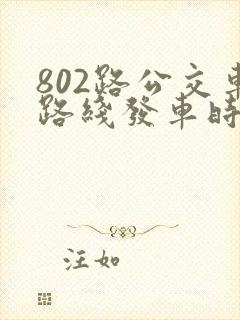 802路公交車
路綫發車時
汪如